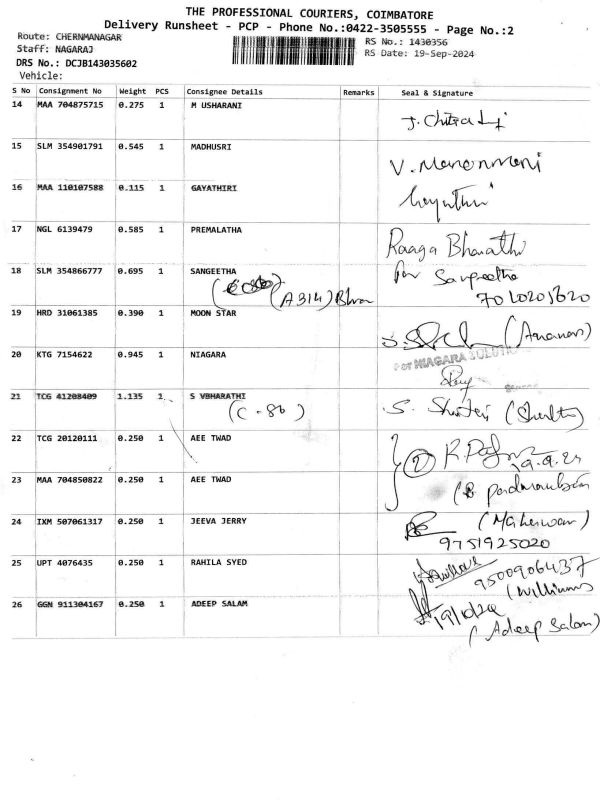 THE PROFESSIONAL COURIERS, COIMBATORE
Delivery Runsheet - PCP - Phone No.:0422-3505555 - Page No.:2
Route: CHERNMANAGAR
RS No.: 1430356
Staff: NAGARAJ
RS Date: 19-Sep-2024
DRS No.: DCJB143035602
Vehicle:
S No Consignment No Weight PCS Consignee Details Remarks Seal & Signature
14 MAA 704875715 0.275 1 M USHARANI
15 SLM 354901791 0.545 1 MADHUSRI
V. Manonmani
16 MAA 110107588 0.115 1 GAYATHIRI
Gayathiri
17 NGL 6139479 0.585 1 PREMALATHA
Raaga Bharathi
18 SLM 354866777 0.695 1 SANGEETHA
for Sangeetha
(A314)
7010201620
19 HRD 31061385 0.390 1 MOON STAR
20 KTG 7154622 0.945 1 NIAGARA
For NIAGARA SOLUTIONS
21 TCG 41208409 1.135 1 S VBHARATHI
(C-86)
22 TCG 20120111 0.250 1 AEE TWAD
2
19.9.24
23 MAA 704850822 0.250 1 AEE TWAD
24 IXM 507061317 0.250 1 JEEVA JERRY
(Maheswari)
9751925020
25 UPT 4076435 0.250 1 RAHILA SYED
9500906437
(Williams
26 GGN 911304167 0.250 1 ADEEP SALAM
(Adeep Salam)